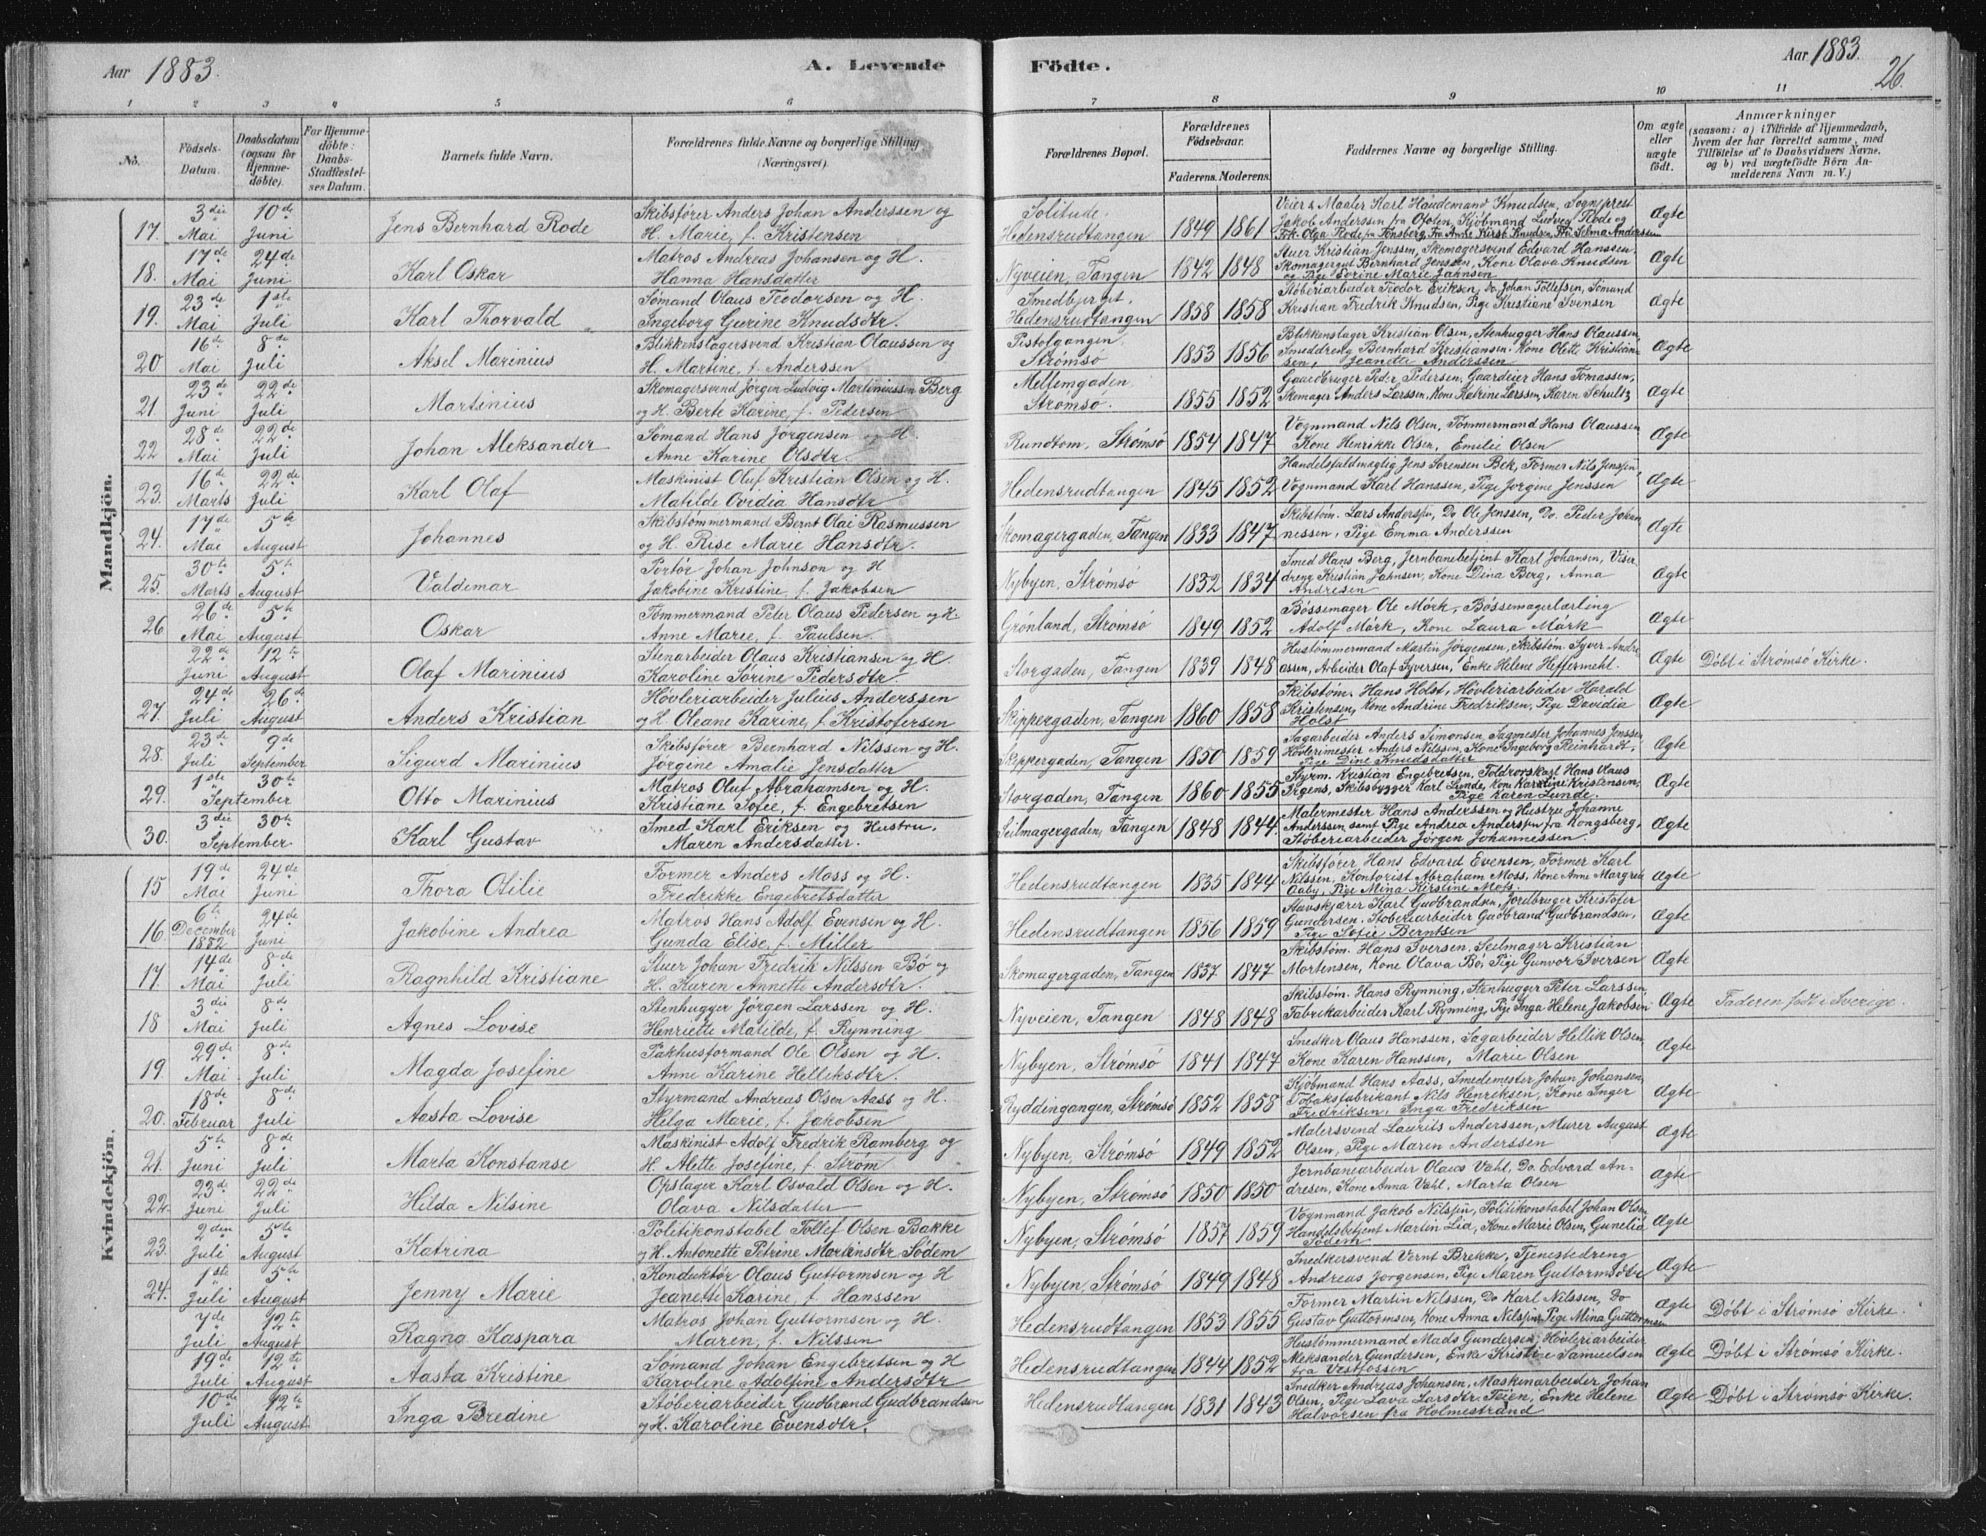 Aar 1883.
A. Levende Födte.
Aar 1883.
26.
1 2 3 4 5 6 7 8 9 10 11
No.
Födsels-Datum.
Daabsdatum (ogsaa for Hjemme-döbte).
For Hjemme-döbte: Daabs-Stadfæstel-ses Datum.
Barnets fulde Navn.
Forældrenes fulde Navne og borgerlige Stilling (Næringsvei).
Forældrenes Bopæl.
Forældrenes Födselsaar.
Faderens. Moderens.
Faddernes Navne og borgerlige Stilling.
Om ægte eller uægte födt.
Anmærkninger
(saasom: a) i Tilfælde af Hjemmedaab, hvem der har forrettet samme, med Tilföielse af to Daabsvidners Navne, og b) ved uægtefödte Börn Anmelderens Navn m. V.)
Mandkjön.
17. 3die Mai 10de Juni Jens Bernhard Rode Skibsfører Anders Johan Anderssen og H. Marie, f. Kristensen Solitude. Hedensrudtangen 1849 1861 Veier & Maaler Karl Haudemand Knudsen, Sogneprest Jakob Anderssen fra Ofoten, Kjøbmand Ludvig Rode og Frk. Olga Rode fra Tønsberg, Fru Anne Kirst. Knudsen, Frk. Selma Anderssen Ægte
18. 17de Mai 24de Juni Karl Oskar Matros Andreas Johansen og H. Hanna Hansdatter Nyveien, Tangen 1842 1848 Stuer Kristian Jenssen, Skomagersvend Edvard Hanssen, Skomagergut Bernhard Jenssen, Kone Olava Knudsen og Pige Sorine Marie Jahnsen Ægte
19. 23de Mai 1ste Juli Karl Thorvald Sømand Olaus Teodorsen og H. Ingeborg Gurine Knudsdtr. Smedbjerget, Hedensrudtangen 1858 1858 Støberiarbeider Teodor Eriksen, Do. Johan Tollefsen, Sømand Kristian Fredrik Knudsen, Pige Kristiane Svensen Ægte
20 16de Mai 8de Juli Aksel Marinius Blikkenslagersvend Kristian Olaussen og H. Martine, f. Anderssen Pistolgangen. Strømsø 1853 1856 Blikkenslager Kristian Olsen, Stenhugger Hans Olaussen, Smeddreng Bernhard Kristiansen. Kone Olette Kristiansen, Jeanette Anderssen Ægte
21 23de Juni 22de Juli Martinius Skomagersvend Jørgen Ludvig Martiniussen Berg og H. Berte Karine, f. Pedersen Mellemgaden. Strømsø. 1855 1852 Gaardbruger Peder Pedersen, Gaardeier Hans Tomassen, Skomager Anders Larssen, Kone Katrine Larssen, Karen Schultz Ægte
22 28de Mai 22de Juli Johan Aleksander Sømand Hans Jørgensen og H. Anne Karine Olsdtr. Rundtom, Strømsø 1854 1847 Vognmand Nils Olsen, Tømmermand Hans Olaussen Kone Henrikke Olsen, Emilie Olsen Ægte
23. 16de Marts 22de Juli Karl Olaf Maskinist Oluf Kristian Olsen og H. Matilde Ovidia Hansdtr Hedensrudtangen 1845 1852 Handelsfuldmægtig Jens Sørensen Bek, Former Nils Jenssen Vognmand Karl Hanssen, Pige Jorgine Jenssen Ægte
24. 17de Mai 5te August Johannes Skibstømmermand Bernt Olai Rasmussen og H. Rise Marie Hansdtr. Skomagergaden, Tangen 1833 1847 Skibstøm. Lars Anderssen, Do Ole Jenssen, Do. Peder Johannessen, Pige Emma Anderssen Ægte
25. 30te Marts 5te August Valdemar Portør Johan Johnson og H Jakobine Kristine, f. Jakobsen Nybyen, Strømsø 1832 1834 Smed Hans Berg, Jernbanebetjent Karl Johansen, Viserdreng Kristian Jahnsen, Kone Dina Berg, Anna Andresen Ægte
26 26de Mai 5te August Oskar Tømmermand Peter Olaus Pedersen og H. Anne Marie, f. Paulsen. Grønland, Strømsø 1849 1852 Bøssemager Ole Mørk, Bøssemagerlærling Adolf Mørk, Kone Laura Mørk Ægte
22de Juni 12te August Olaf Marinius Stenarbeider Olaus Kristiansen og H Karoline Sørine Pedersdtr Storgaden, Tangen 1839 1848 Hustømmermand Martin Jørgensen, Skibstøm. Syver Andreassen, Arbeider Olaf Syversen, Enke Helene Heffermehl. Ægte Døbt i Strømsø Kirke.
27. 24de Juli 26de August Anders Kristian Høvleriarbeider Julius Anderssen og H. Oleane Karine, f. Kristofersen Skippergaden, Tangen 1860 1858 Skibstøm. Hans Holst, Høvleriarbeider Harald Kristensen, Kone Andrine Fredriksen, Pige Davidia Holst Ægte
28. 23de Juli 9de September Sigurd Marinius Skibsfører Bernhard Nilssen og H. Jørgine Amalie Jensdatter Skippergaden, Tangen 1850 1859 Sagarbeider Anders Simonsen, Sagmester Johannes Jenssen Høvlerimester Anders Nilssen, Kone Ingeborg Reinhardt, Pige Dine Knudsdatter Ægte
29. 1ste September 30te Otto Marinius Matros Oluf Abrahamsen og H. Kristiane Sofie, f. Engebretsen Storgaden, Tangen 1860 1855 Styrm. Kristian Engebretsen, Toldrorskarl Hans Claus Jrgens, Skibsbygger Karl Lunde, Kone Karoline Kristensen, Pige Karen Lunde. Ægte
30. 3die September 30te Karl Gustav Smed Karl Eriksen og Hustru. Maren Andersdatter. Seilmagergaden, Tangen 1848 1844. Malermester Hans Anderssen og Hustru Johanne Anderssen samt Pige Andrea Anderssen fra Kongsberg, Støberiarbeider Jørgen Johannessen. Ægte
Kvindekjön.
15 19de Mai 24de Juni Thora Otilie Former Anders Moss og H. Fredrikke Engebretsdatter Hedensrudtangen 1835 1844 Skibsfører Hans Edvard Evensen, Former Karl Nilssen, Kontorist Abraham Moss, Kone Anne Margrete Aaby, Pige Mina Kirstine Moss. Ægte
16. 6te December 1882 24de Juni Jakobine Andrea Matros Hans Adolf Evensen og H. Gunda Elise, f. Miller Hedensrudtangen 1856 1859 Stavskjærer Karl Gudbrandsen, Jordbruger Kristofer Gundersen. Støberiarbeider Gudbrand Gudbrandsen, Pige Sofie Berntsen Ægte
17. 14de Mai 8de Juli Ragnhild Kristiane Stuer Johan Fredrik Nilssen Bø og H. Karen Annette Andersdtr. Skomagergaden, Tangen 1837 1847 Skibstøm. Hans Iversen, Seilmager Kristian Mortensen, Kone Olava Bø, Pige Gunvor Iversen Ægte
18 3die Mai 8de Juli Agnes Lovise Stenhugger Jørgen Larssen og H. Henriette Matilde, f. Rynning Nyveien, Tangen 1848 1848 Skibstøm. Hans Rynning, Stenhugger Peter Larssen, Fabrikarbeider Karl Rynning, Pige Inga Helene Jakobsen Ægte Faderen født i Sverige.
19. 29de Mai. 8de Juli Magda Josefine Pakhusformand Ole Olsen og H. Anne Karine Helliksdtr. Nybyen, Strømsø 1841 1847 Snedker Olaus Hanssen, Sagarbeider Hellik Olsen, Kone Karen Hanssen, Marie Olsen Ægte
20. 18de Februar 8de Juli Aasta Lovise Styrmand Andreas Olsen Aass og H. Helga Marie, f. Jakobsen Ryddingangen, Strømsø 1852 1858 Kjøbmand Hans Aass, Smedemester Johan Johansen, Tobaksfabrikant Nils Henriksen, Kone Inger Fredriksen, Inga Fredriksen Ægte
21. 5te Juni 8de Juli Marta Konstanse Maskinist Adolf Fredrik Ramberg og H. Alette Josefine, f. Strøm Nybyen, Strømsø 1849 1852 Malersvend Laurits Anderssen, Murer August Olsen, Pige Maren Anderssen Ægte
22. 23de Juni 22de Juli Hilda Nilsine Opslager Karl Osvald Olsen og H. Olava Nilsdatter Nybyen, Strømsø 1850 1850 Jernbanearbeider Olaus Vahl, Do. Edvard Andresen, Kone Anna Vahl, Marta Olsen Ægte
23. 2den Juli 5te August Katrina Politikonstabel Tollef Olsen Bakke og H. Antonette Petrine Martinsdtr. Södem Nybyen, Strømsø 1857 1859 Vognmand Jakob Nilssen, Politikonstabel Johan Olsen, Handelsbetjent Martin Lia, Kone Marie Olsen, Gunelia Södem Ægte
24. 1ste Juli 5te August Jenny Marie Konduktør Olaus Guttormsen og H Jeanette Karine, f. Hanssen Nybyen, Strømsø 1849 1848 Snedkersvend Vernt Brekke, Tjenestedreng Andreas Jørgensen, Pige Maren Guttormsdtr Ægte
7de Juli 12te August Ragna Kaspara Matros Johan Guttormsen og H. Maren, f. Nilssen Hedensrudtangen 1853 1855 Former Martin Nilssen, Do Karl Nilssen, Do Gustav Guttormsen, Kone Anna Nilssen, Pige Mina Guttormsen Ægte Døbt i Strømsø Kirke.
19de Juli 12te August Aasta Kristine Sømand Johan Engebretsen og H Karoline Adolfine Andersdtr Hedensrudtangen 1844 1852 Hustømmermand Mads Gundersen, Høvleriarbeider Aleksander Gundersen, Enke Kristine Samuelsen fra Vestfossen Ægte Døbt i Strømsø Kirke.
10de Juli 12te August Inga Bredine Støberiarbeider Gudbrand Gudbrandsen og H. Karoline Evensdtr. Hedensrudtangen 1831 1843 Snedker Andreas Johansen, Maskinarbeider Johan Olsen, Pige Lava Larsdtr. Teien, Enke Helene Halvorsen fra Holmestrand Ægte Døbt i Strømsø Kirke.